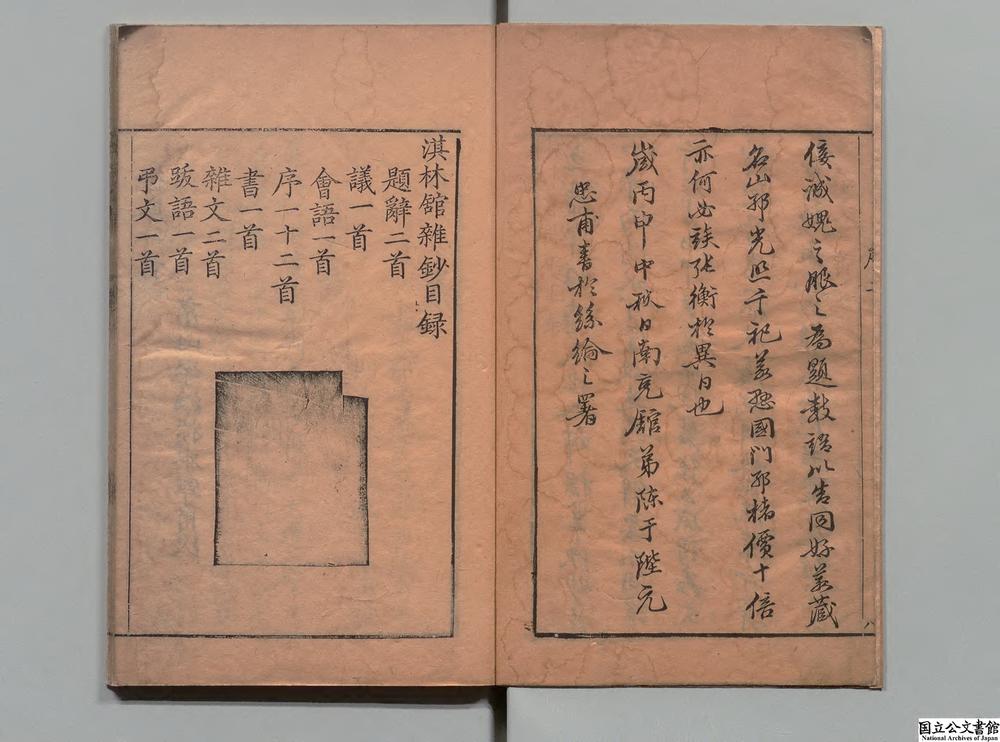 倿誠媿之服之為題數語以告同好若藏
名山耶光照千祀若懸國門耶楮價十倍
亦何必族張衡於異日也
歲丙申中秋日南充館弟陳于陛元
忠甫書於絲綸之署
淇林舘雜鈔目録
題辭二首
議一首
會語一首
序一十二首
書一首
雜文二首
跋語一首
弔文一首
国立公文書館
National Archives of Japan